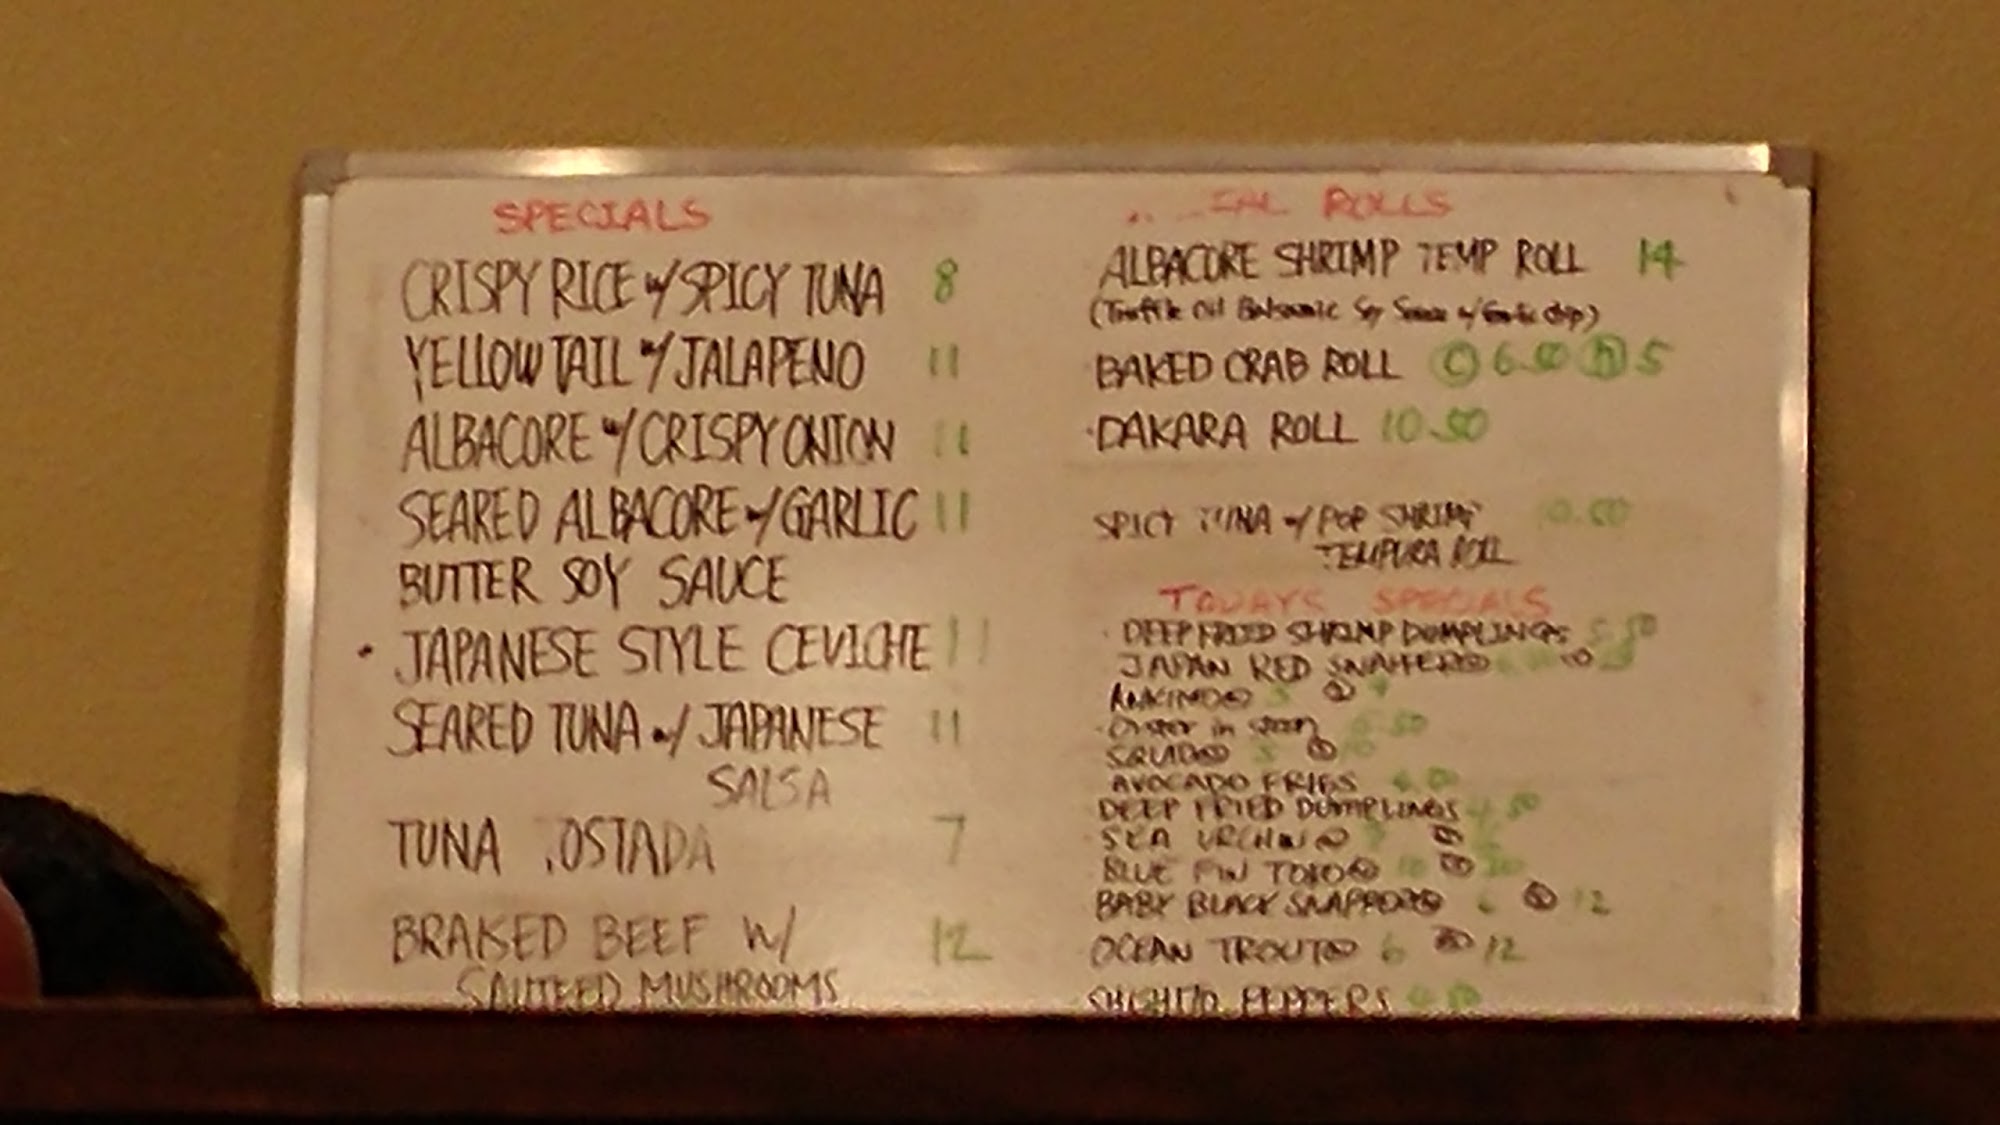 SPECIALS
CRISPY RICE w/ SPICY TUNA 8
YELLOWTAIL w/ JALAPENO 11
ALBACORE w/ CRISPY ONION 11
SEARED ALBACORE w/ GARLIC 11
BUTTER SOY SAUCE
JAPANESE STYLE CEVICHE 11
SEARED TUNA w/ JAPANESE 11
SALSA
TUNA OSTADA 7
BRAISED BEEF W/ 12
SAUTEED MUSHROOMS
IAL ROLLS
ALBACORE SHRIMP TEMP ROLL 14
(Truffle Oil Balsamic Soy Sauce w/ Garlic chip)
BAKED CRAB ROLL C 6.50 h 5
DAKARA ROLL 10.50
SPICY TUNA w/ POP SHRIMP
TEMPURA ROLL
TODAYS SPECIALS
DEEP FRIED SHRIMP DUMPLINGS 5.50
JAPAN RED SNAPPER
Oyster in
SQUID
AVOCADO FRIES
DEEP FRIED DUMPLINGS 4.50
SEA URCHIN
BLUE FIN TORO
BABY BLACK SNAPPER 12
OCEAN TROUT 6 12
SHISHITO PEPPERS